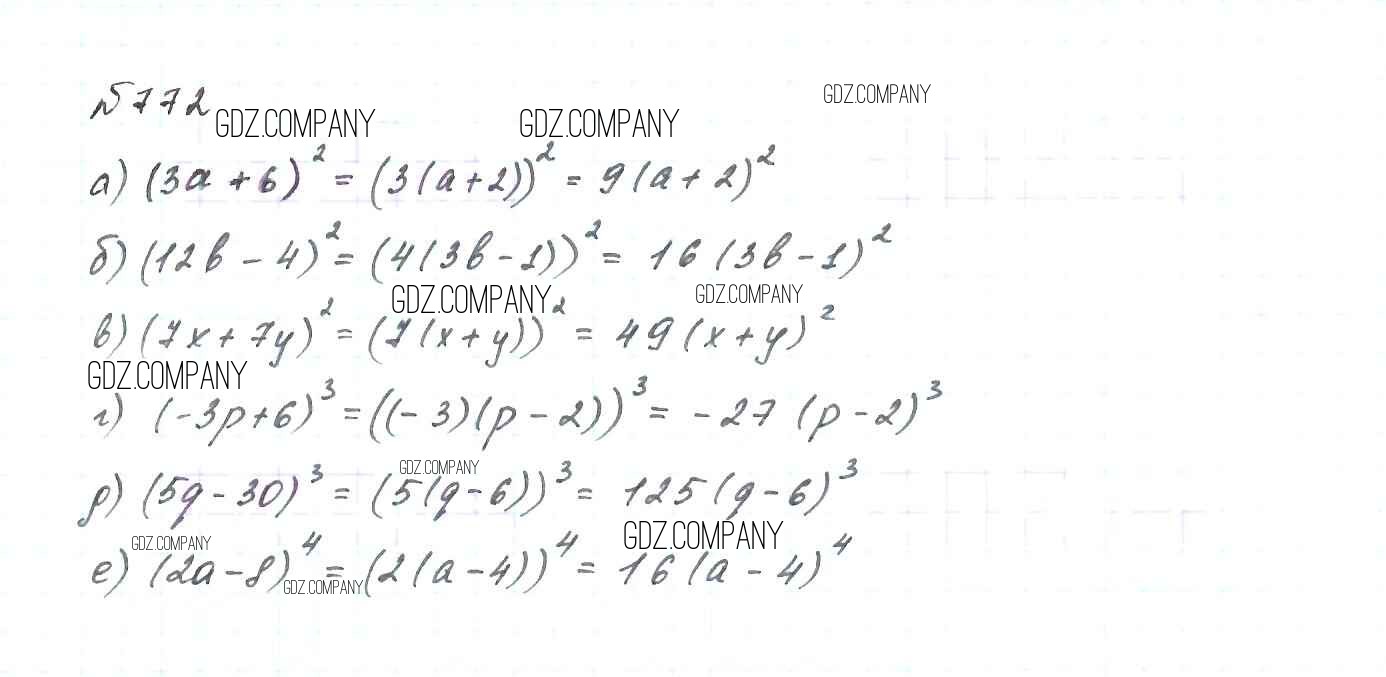 №772
GDZ.COMPANY GDZ.COMPANY GDZ.COMPANY
а) (3a + 6)² = (3(a + 2))² = 9(a + 2)²
б) (12b - 4)² = (4(3b - 1))² = 16(3b - 1)²
GDZ.COMPANY GDZ.COMPANY
в) (7x + 7y)² = (7(x + y))² = 49(x + y)²
GDZ.COMPANY
г) (-3p + 6)³ = ((-3)(p - 2))³ = -27(p - 2)³
GDZ.COMPANY
д) (5q - 30)³ = (5(q - 6))³ = 125(q - 6)³
GDZ.COMPANY GDZ.COMPANY
е) (2a - 8)⁴ = (2(a - 4))⁴ = 16(a - 4)⁴
GDZ.COMPANY